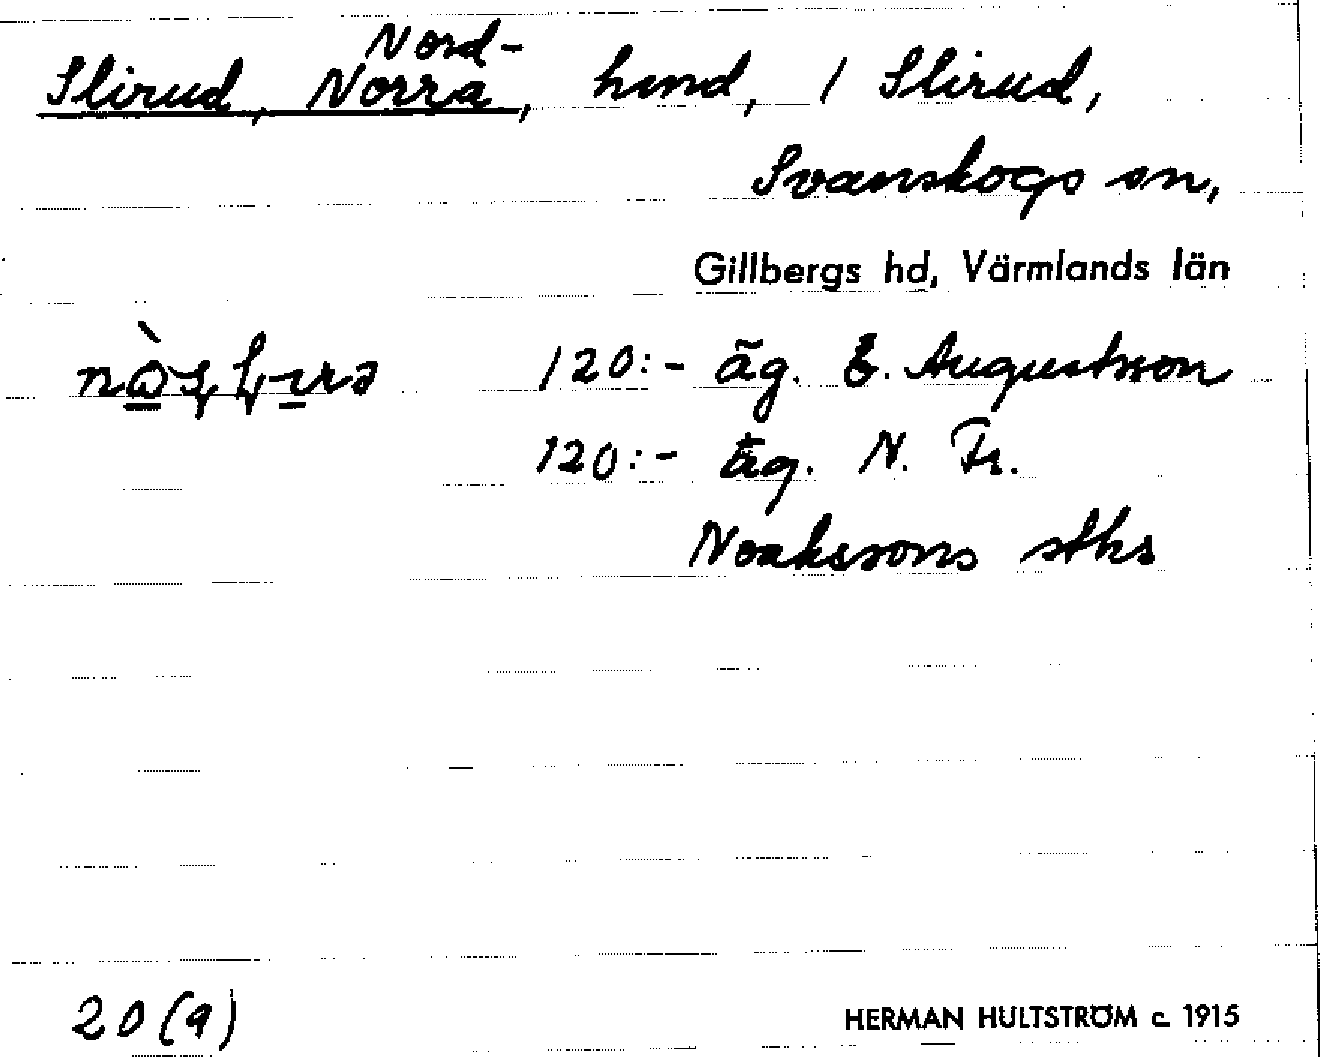 Nord-
Slirud, Norra, hmd, 1 Slirud,
Svanskogs sn,
Gillbergs hd, Värmlands län
120:- äg. E. Augustsson
120:- äg. N. Fr.
Noakssons stbs
20(9)
HERMAN HULTSTRÖM c. 1915